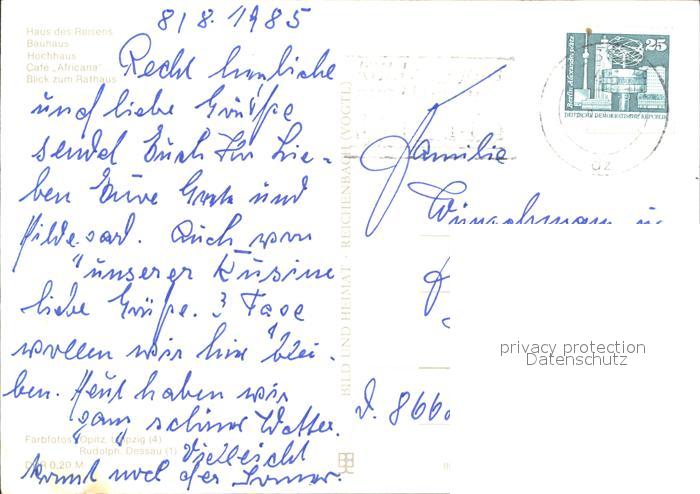 8/8. 1985
Haus des Reisens
Bauhaus
Hochhaus
Cafe „Africana"
Blick zum Rathaus
Recht herzliche
und liebe Grüße
send Euch Ihr Lie-
ben Eure Greta und
Hildegard. Auch von
unserer Kusine
liebe Grüße. 3 Tage
wollen wir hier blei-
ben. Heut haben wir
ganz schönes Wetter.
Vielleicht
kommt noch der Sommer.
Farbfotos: Opitz, Leipzig (4)
Rudolph, Dessau (1)
0,20 M
BILD UND HEIMAT · REICHENBACH (VOGTL)
25
Berlin, Alexanderplatz
DEUTSCHE DEMOKRATISCHE REPUBLIK
Familie
D. 866
privacy protection
Datenschutz